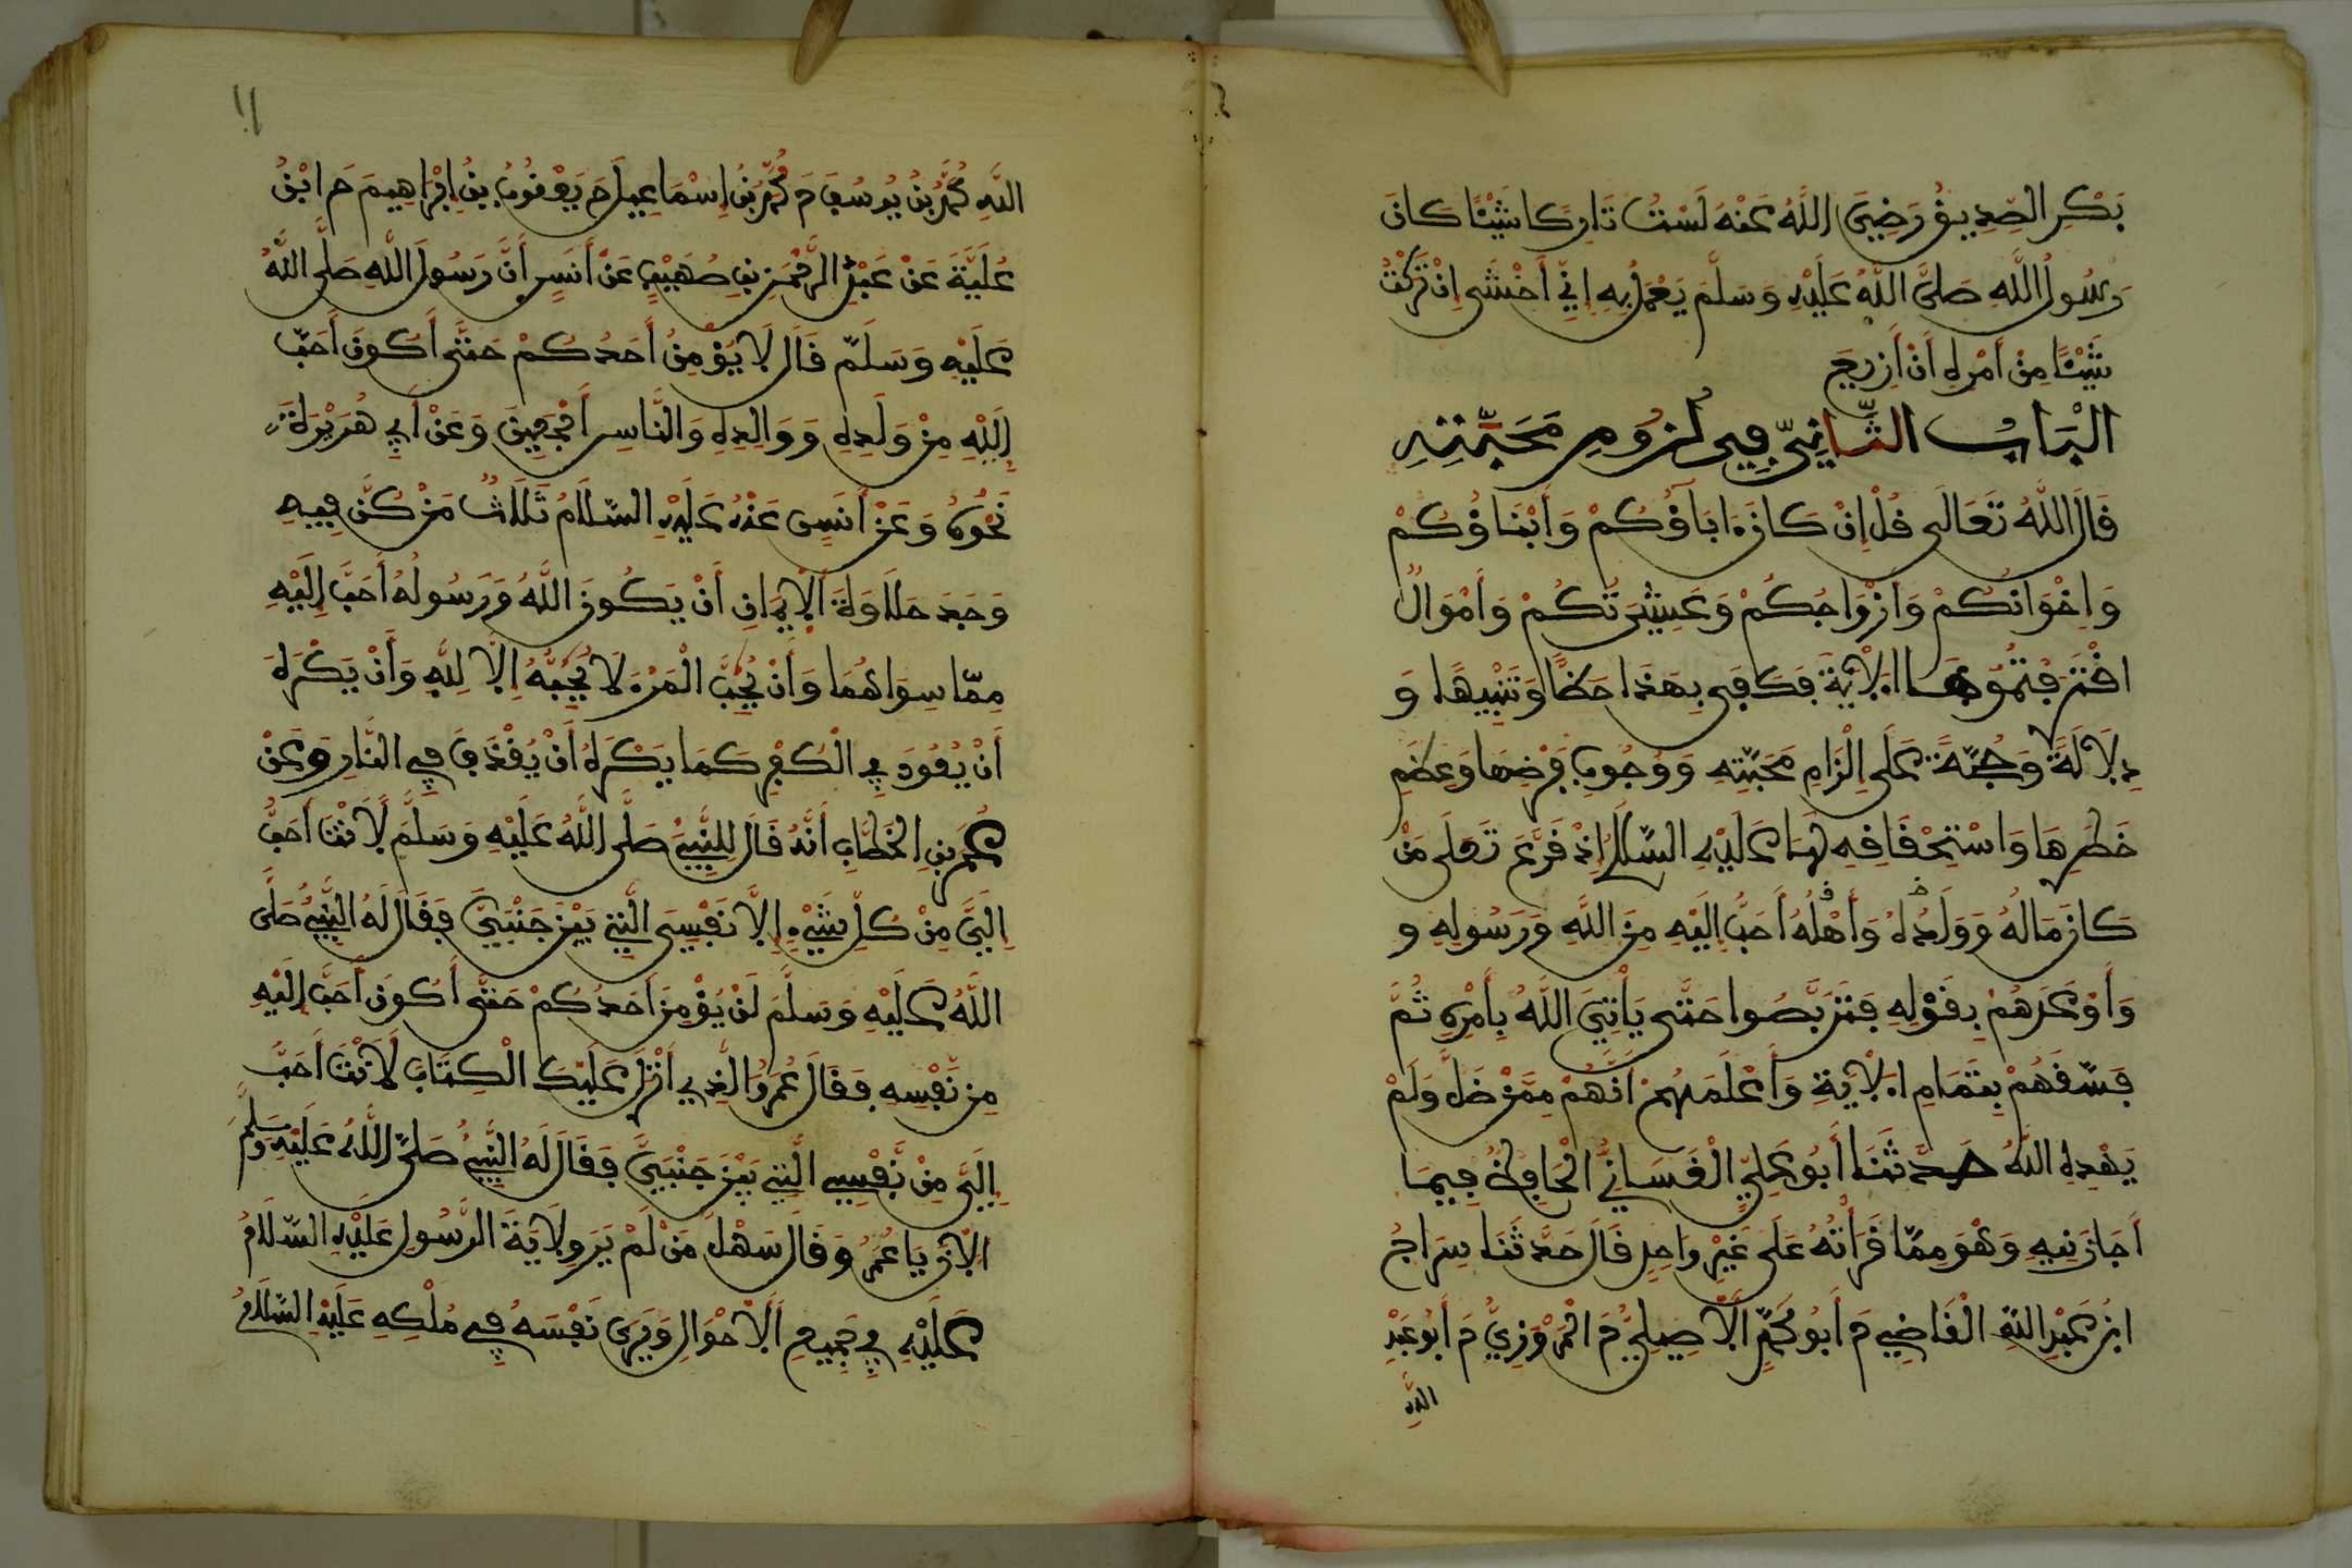 بَكْرٍ الصِّدِيقُ رَضِيَ اللَّهُ عَنْهُ لَسْتُ تَارِكًا شَيْئًا كَانَ
رَسُولُ اللَّهِ صَلَّى اللَّهُ عَلَيْهِ وَسَلَّمَ يَعْمَلُ بِهِ إِنِّي أَخْشَى إِنْ تَرَكْتُ
شَيْئًا مِنْ أَمْرِهِ أَنْ أَزِيغَ
الْبَابُ الثَّانِيّ فِي لُزُومِ مَحَبَّتِهِ
قَالَ اللَّهُ تَعَالَى قُلْ إِنْ كَانَ ءَابَآؤُكُمْ وَأَبْنَاؤُكُمْ
وَإِخْوَانُكُمْ وَأَزْوَاجُكُمْ وَعَشِيرَتُكُمْ وَأَمْوَالٌ
اقْتَرَفْتُمُوهَا الْآيَةَ فَكَفَى بِهَذَا حَظًّا وَتَنْبِيهًا وَ
دِلَالَةً وَحُجَّةً عَلَى إِلْزَامِ مَحَبَّتِهِ وَوُجُوبِ فَرْضِهَا وَعِظَمِ
خَطَرِهَا وَاسْتِحْقَاقِهِ لَهَا عَلَيْهِ السَّلَامُ إِذْ قَرَّعَ تَعَلَى مَنْ
كَانَ مَالُهُ وَوَلَدُهُ وَأَهْلُهُ أَحَبَّ إِلَيْهِ مِنَ اللَّهِ وَرَسُولِهِ وَ
وَأَوْعَدَهُمْ بِقَوْلِهِ فَتَرَبَّصُوا حَتَّى يَأْتِيَ اللَّهُ بِأَمْرِهِ ثُمَّ
فَسَّقَهُمْ بِتَمَامِ الْآيَةِ وَأَعْلَمَهُمْ أَنَّهُمْ مِمَّنْ ضَلَّ وَلَمْ
يَهْدِهِ اللَّهُ حَدَّثَنَا أَبُو عَلِيٍّ الْغَسَانِيُّ الْحَافِظُ فِيمَا
أَجَازَنِيهِ وَهْوَ مِمَّا قَرَأْتُهُ عَلَى غَيْرِ وَاحِدٍ قَالَ حَدَّثَنَا سِرَاجُ
ابْنُ عَبْدِ اللَّهِ الْقَاضِي حَ أَبُو مُحَمَّدٍ الْأَصِيلِيُّ حَ الْمَرْوَزِيُّ حَ أَبُو عَبْدِ
اللَّهِ
١١
اللَّهِ مُحَمَّدُ بْنُ يُوسُفَ حَ مُحَمَّدُ بْنُ إِسْمَاعِيلَ حَ يَعْقُوبُ بْنُ إِبْرَاهِيمَ حَ ابْنُ
عُلَيَّةَ عَنْ عَبْدِ الرَّحْمَنِ بْنِ صُهَيْبٍ عَنْ أَنَسٍ أَنَّ رَسُولَ اللَّهِ صَلَّى اللَّهُ
عَلَيْهِ وَسَلَّمَ قَالَ لَا يُؤْمِنُ أَحَدُكُمْ حَتَّى أَكُونَ أَحَبَّ
إِلَيْهِ مِنْ وَلَدِهِ وَوَالِدِهِ وَالنَّاسِ أَجْمَعِينَ وَعَنْ أَبِي هُرَيْرَةَ
نَحْوُهُ وَعَنْ أَنَسٍ عَنْهُ عَلَيْهِ السَّلَامُ ثَلَاثٌ مَنْ كُنَّ فِيهِ
وَجَدَ حَلَاوَةَ الْإِيمَانِ أَنْ يَكُونَ اللَّهُ وَرَسُولُهُ أَحَبَّ إِلَيْهِ
مِمَّا سِوَاهُمَا وَأَنْ يُحِبَّ الْمَرْءَ لَا يُحِبُّهُ إِلَّا لِلَّهِ وَأَنْ يَكْرَهَ
أَنْ يَعُودَ فِي الْكُفْرِ كَمَا يَكْرَهُ أَنْ يُقْذَفَ فِي النَّارِ وَعَنْ
عُمَرَ بْنِ الْخَطَّابِ أَنَّهُ قَالَ لِلنَّبِيِّ صَلَّى اللَّهُ عَلَيْهِ وَسَلَّمَ لَأَنْتَ أَحَبُّ
إِلَيَّ مِنْ كُلِّ شَيْءٍ إِلَّا نَفْسِيَ الَّتِي بَيْنَ جَنْبَيَّ فَقَالَ لَهُ النَّبِيُّ صَلَّى
اللَّهُ عَلَيْهِ وَسَلَّمَ لَنْ يُؤْمِنَ أَحَدُكُمْ حَتَّى أَكُونَ أَحَبَّ إِلَيْهِ
مِنْ نَفْسِهِ فَقَالَ عُمَرُ وَالَّذِي أَنْزَلَ عَلَيْكَ الْكِتَابَ لَأَنْتَ أَحَبُّ
إِلَيَّ مِنْ نَفْسِي الَّتِي بَيْنَ جَنْبَيَّ فَقَالَ لَهُ النَّبِيُّ صَلَّى اللَّهُ عَلَيْهِ وَسَلَّمَ
الْآنَ يَا عُمَرُ وَقَالَ سَهْلٌ مَنْ لَمْ يَرَ وِلَايَةَ الرَّسُولِ عَلَيْهِ السَّلَامُ
عَلَيْهِ فِي جَمِيعِ الْأَحْوَالِ وَيَرَى نَفْسَهُ فِي مُلْكِهِ عَلَيْهِ السَّلَامُ